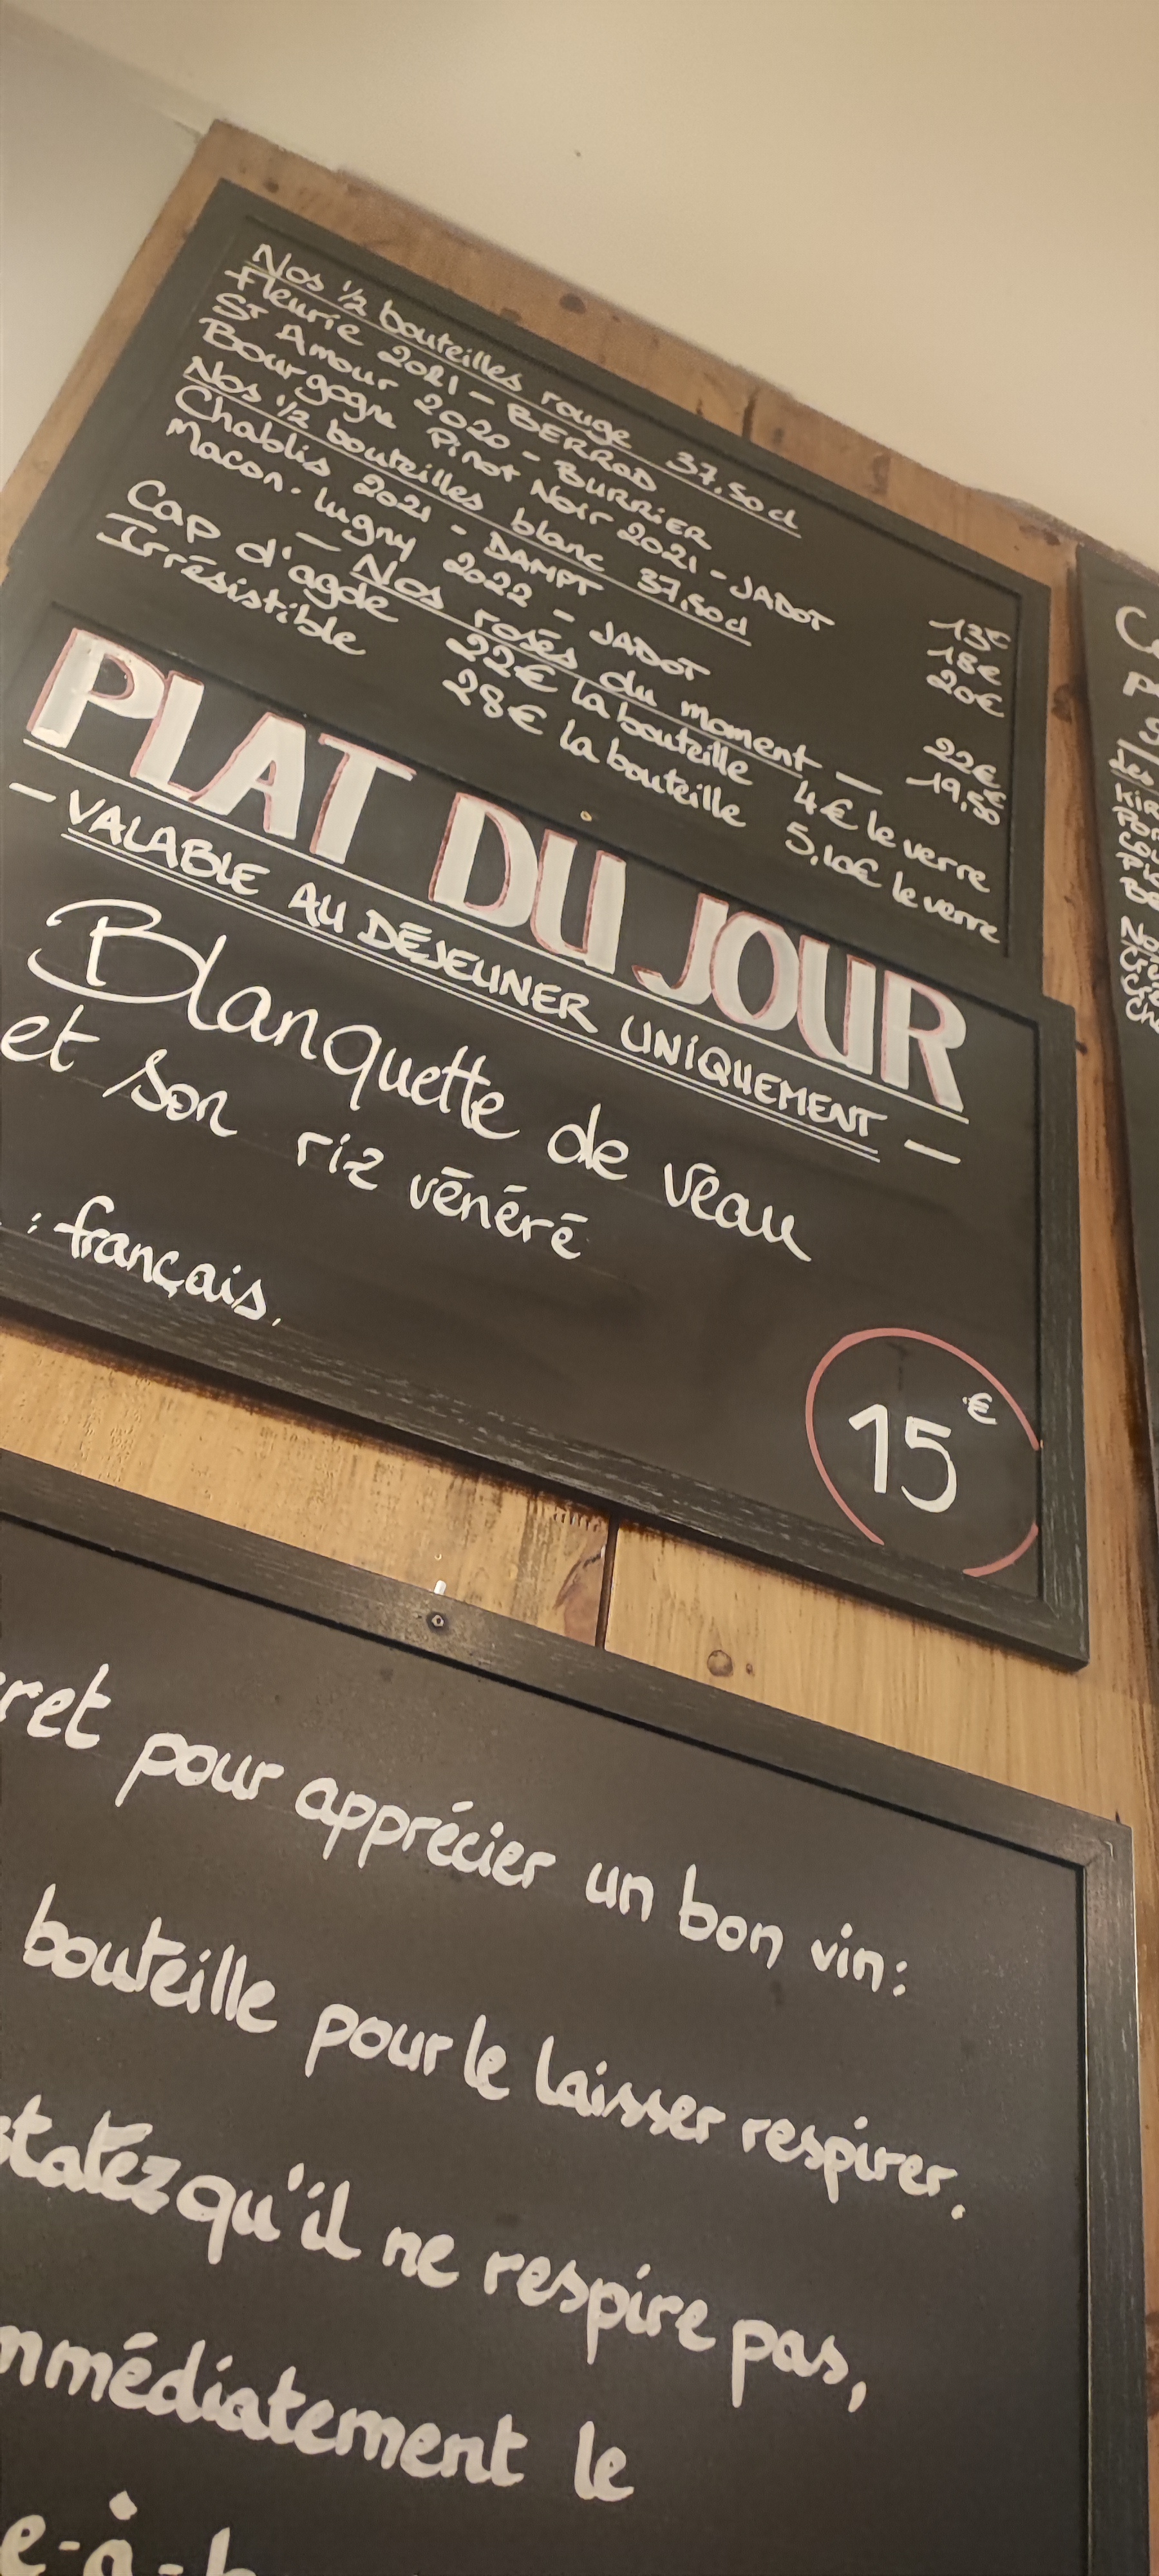 Nos 1/2 bouteilles rouge 37,50cl
Fleurie 2021 - BERROD 13€
St Amour 2020 - BURRIER 18€
Bourgogne Pinot Noir 2021 - JADOT 20€
Nos 1/2 bouteilles blanc 37,50cl
Chablis 2021 - DAMPT 22€
Macon-Lugny 2022 - JADOT 19,50€
— Nos rosés du moment —
Cap d'agde 22€ la bouteille 4€ le verre
Irrésistible 28€ la bouteille 5,10€ le verre
PLAT DU JOUR
— VALABLE AU DÉJEUNER UNIQUEMENT —
Blanquette de veau
et son riz vénéré
: français,
15€
ret pour apprécier un bon vin:
bouteille pour le laisser respirer.
statez qu'il ne respire pas,
mmédiatement le
e-à-b